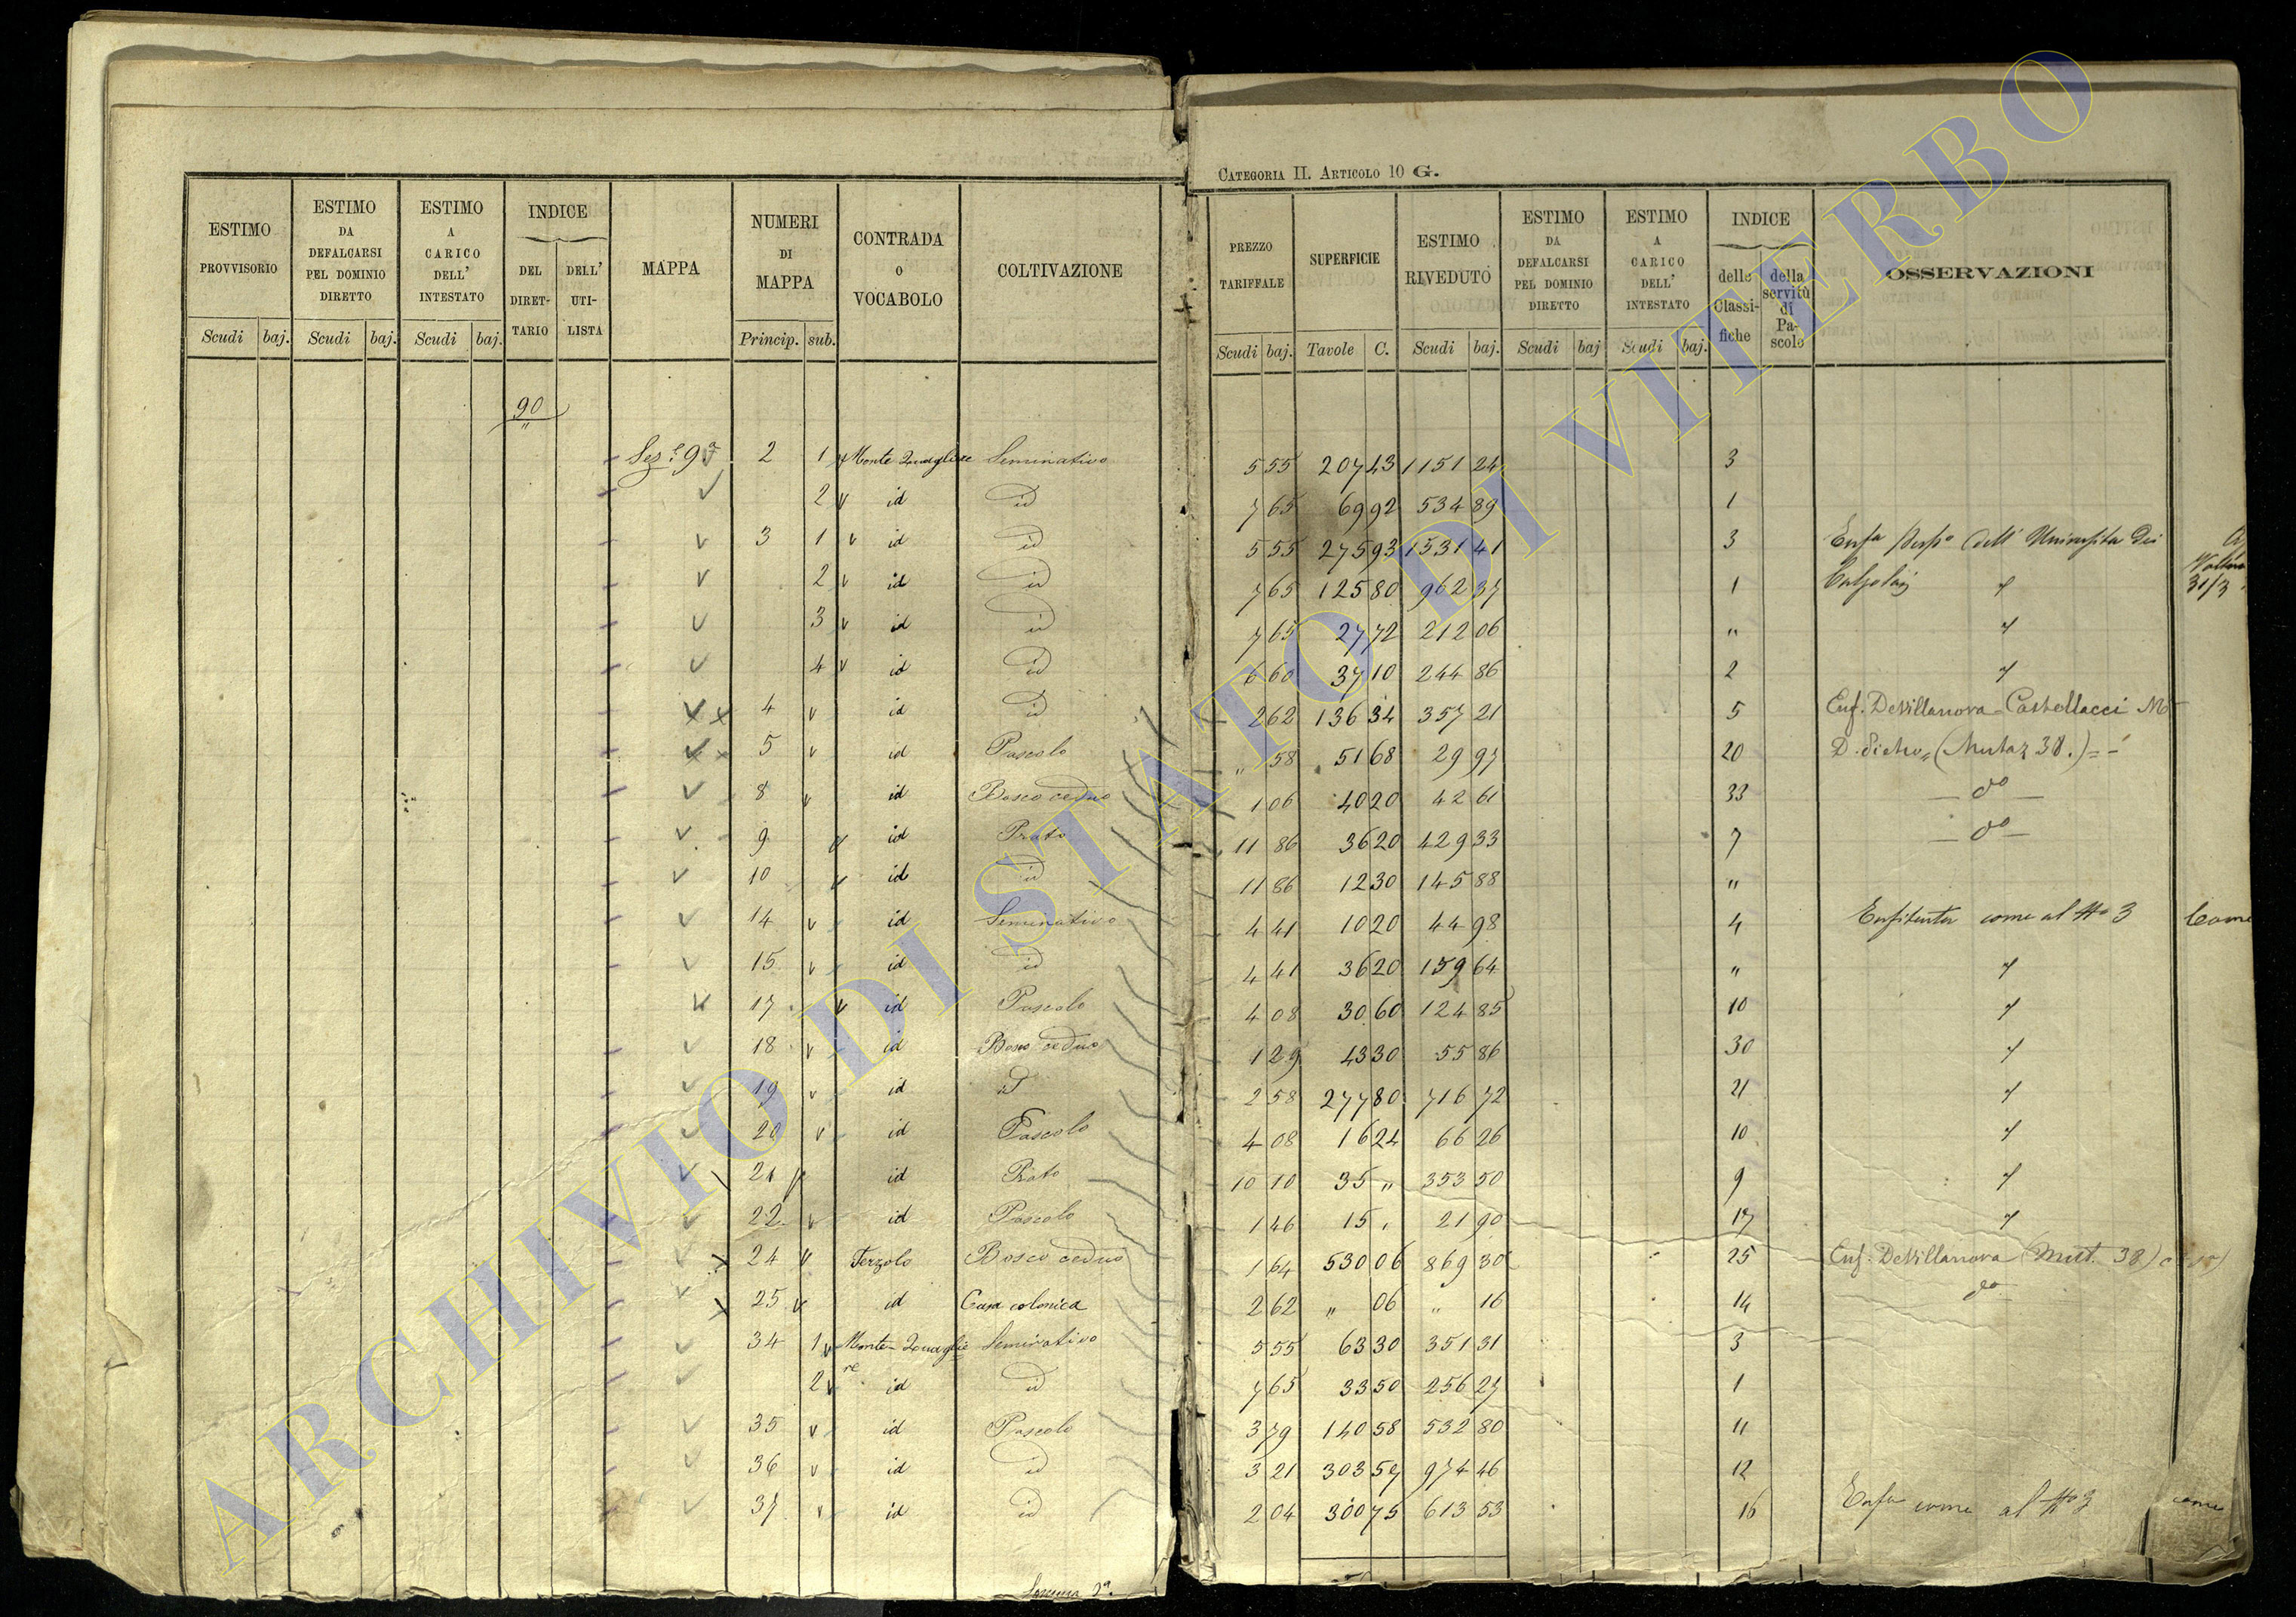 CATEGORIA II. ARTICOLO 10 G.
ESTIMO PROVVISORIO | ESTIMO DA DEFALCARSI PEL DOMINIO DIRETTO | ESTIMO A CARICO DELL' INTESTATO | INDICE DEL DIRETTARIO | DELL' UTILISTA | MAPPA | NUMERI DI MAPPA | CONTRADA O VOCABOLO | COLTIVAZIONE | PREZZO TARIFFALE | SUPERFICIE | ESTIMO RIVEDUTO | ESTIMO DA DEFALCARSI PEL DOMINIO DIRETTO | ESTIMO A CARICO DELL' INTESTATO | INDICE delle Classifiche | della servitù di Pascolo | OSSERVAZIONI
Scudi baj. | Scudi baj. | Scudi baj. | Princip. sub. | Scudi baj. | Tavole C. | Scudi baj. | Scudi baj | Scudi baj.
90
"
Sez.e 9a 2 1 Monte Quagliere Seminativo 5 55 207 43 1151 24 3
2 id id 7 65 69 92 534 89 1
3 1 id id 5 55 275 93 1531 41 3 Enfa Perpa dell' Università dei
2 id id 7 65 125 80 962 37 1 Calzolaj "
3 id id 7 65 27 72 212 06 " "
4 id id 6 60 37 10 244 86 2 "
4 id id 2 62 136 34 357 21 5 Enf. DeVillanova Castellacci M
5 id Pascolo " 58 51 68 29 97 20 D. Pietro (Mutaz 38.)
8 id Bosco ceduo 1 06 40 20 42 61 33 — do —
9 id Prato 11 86 36 20 429 33 7 — do —
10 id id 11 86 12 30 145 88 "
14 id Seminativo 4 41 10 20 44 98 4 Enfiteuta come al No 3 Come
15 id id 4 41 36 20 159 64 " "
17 id Pascolo 4 08 30 60 124 85 10 "
18 id Bosco ceduo 1 29 43 30 55 86 30 "
19 id id 2 58 277 80 716 72 21 "
20 id Pascolo 4 08 16 24 66 26 10 "
21 id Prato 10 10 35 " 353 50 9 "
22 id Pascolo 1 46 15 " 21 90 17 "
24 Terzolo Bosco ceduo 1 64 530 06 869 30 25 Enf. DeVillanova (Mut. 38)
25 id Casa colonica 2 62 " 06 " 16 14 do
34 1 Monte Quagliere Seminativo 5 55 63 30 351 31 3
2 id id 7 65 33 50 256 27 1
35 id Pascolo 3 79 140 58 532 80 11
36 id id 3 21 303 57 974 46 12
37 id id 2 04 300 75 613 53 16 Enfa come al No 3 come
ARCHIVIO DI STATO DI VITERBO